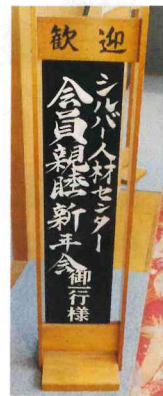 歓迎
シルバー人材センター
会員親睦新年会御一行様